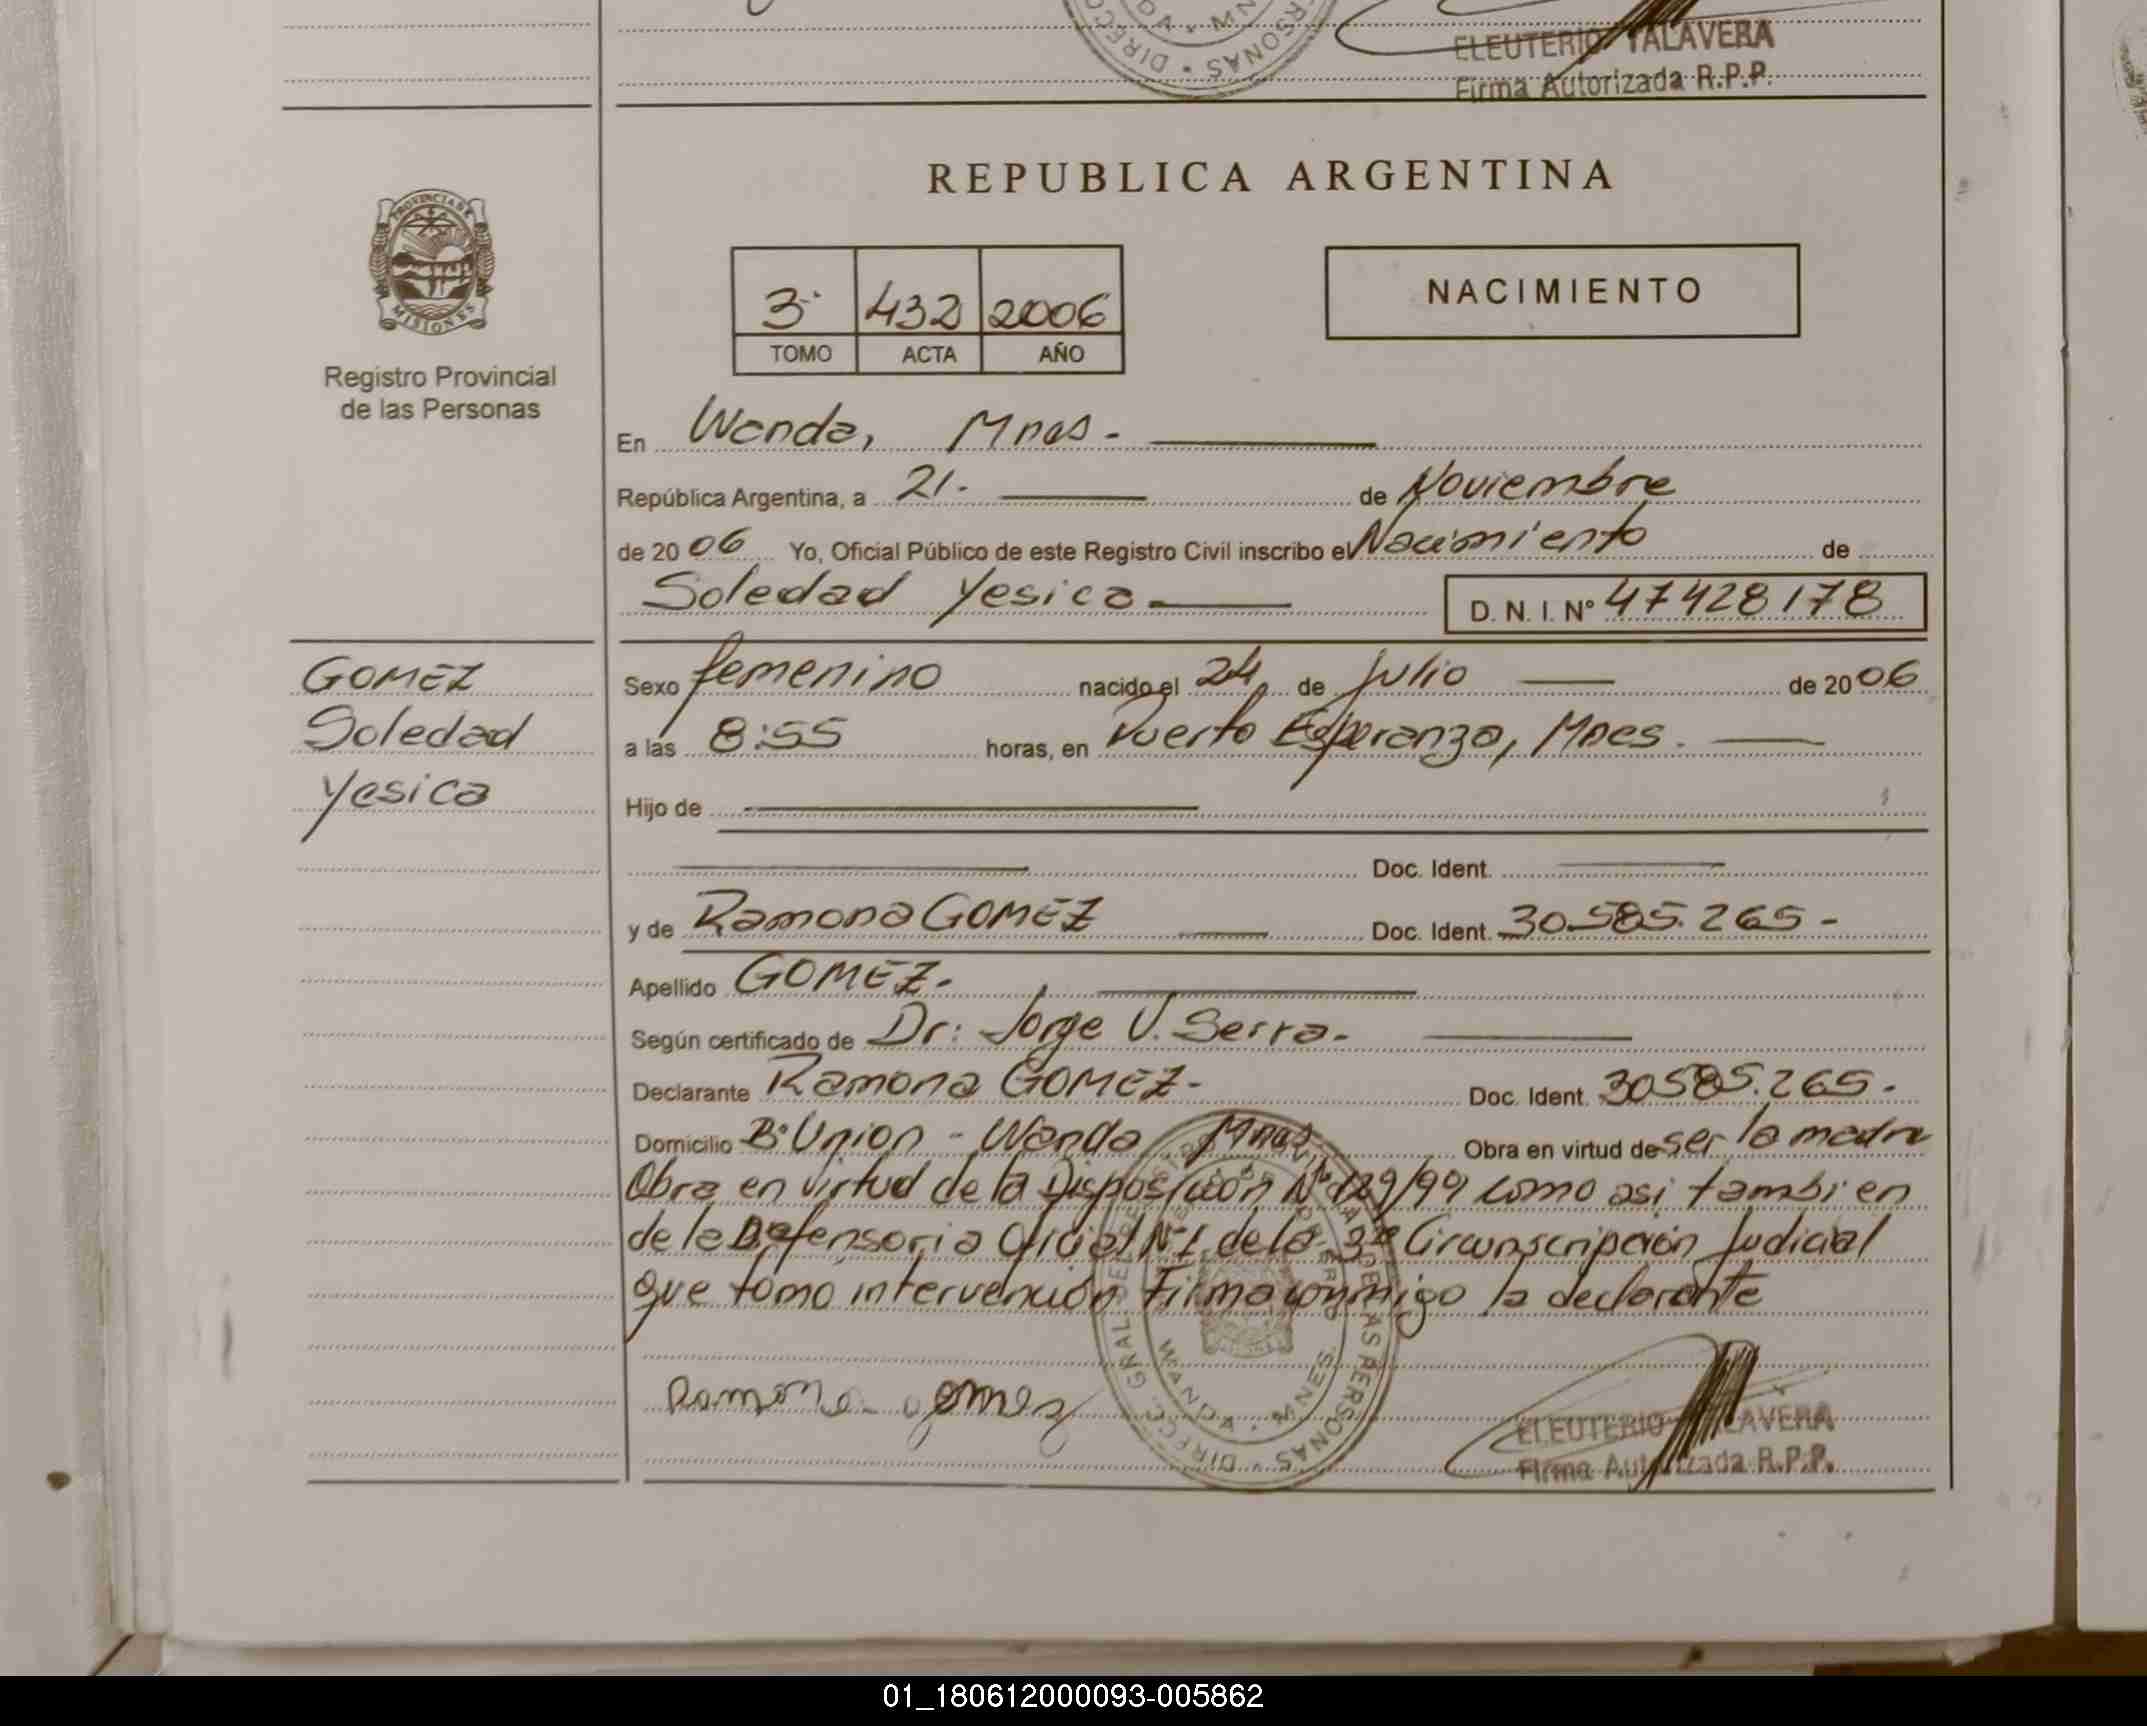 ELEUTERIO TALAVERA
Firma Autorizada R.P.P.
REPUBLICA ARGENTINA
PROVINCIA DE
MISIONES
Registro Provincial
de las Personas
3· 432 2006
TOMO ACTA AÑO
NACIMIENTO
En Wanda, Mnes -
República Argentina, a 21. de Noviembre
de 2006 Yo, Oficial Público de este Registro Civil inscribo el Nacimiento de
Soledad Yesica D. N. I. Nº 47428178
GOMEZ
Soledad
Yesica
Sexo femenino nacido el 24 de Julio de 2006
a las 8:55 horas, en Puerto Esperanza, Mnes.
Hijo de
Doc. Ident.
y de Ramona GOMEZ Doc. Ident. 30.585.265-
Apellido GOMEZ.
Según certificado de Dr: Jorge V. Serra.
Declarante Ramona GOMEZ- Doc. Ident. 30585.265.
Domicilio Bº Union - Wanda Mnes Obra en virtud de ser la madre
Obra en virtud de la Disposicion Nº 129/99 como asi tambien
de la Defensoria Oficial Nº1 de la 3ª Circunscripción Judicial
que tomo intervención Firma conmigo la declarante
Ramona gomez
WANDA · MNES.
ELEUTERIO TALAVERA
Firma Autorizada R.P.P.
01_180612000093-005862